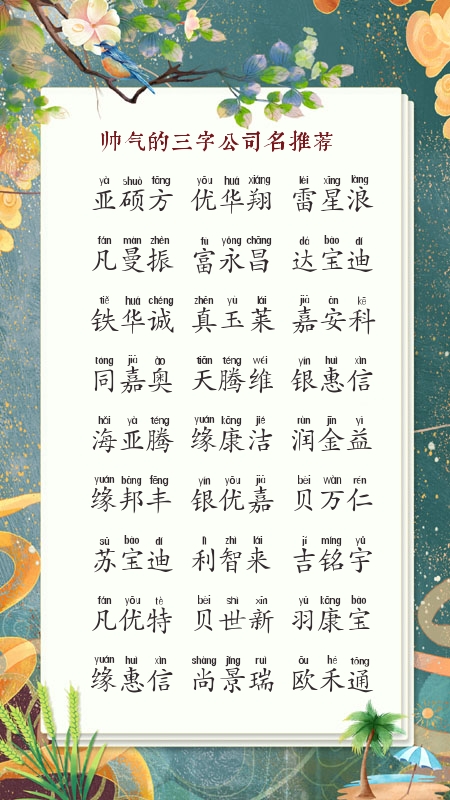 帅气的三字公司名推荐
yà shuò fāng yōu huá xiáng léi xīng làng
亚硕方 优华翔 雷星浪
fán màn zhèn fù yǒng chāng dá bǎo dí
凡曼振 富永昌 达宝迪
tiě huá chéng zhēn yù lái jiā ān kē
铁华诚 真玉莱 嘉安科
tóng jiā ào tiān téng wéi yín huì xìn
同嘉奥 天腾维 银惠信
hǎi yà téng yuán kāng jié rùn jīn yì
海亚腾 缘康洁 润金益
yuán bāng fēng yín yōu jiā bèi wàn rén
缘邦丰 银优嘉 贝万仁
sū bǎo dí lì zhì lái jí míng yǔ
苏宝迪 利智来 吉铭宇
fán yōu tè bèi shì xīn yǔ kāng bǎo
凡优特 贝世新 羽康宝
yuán huì xìn shàng jǐng ruì ōu hé tōng
缘惠信 尚景瑞 欧禾通